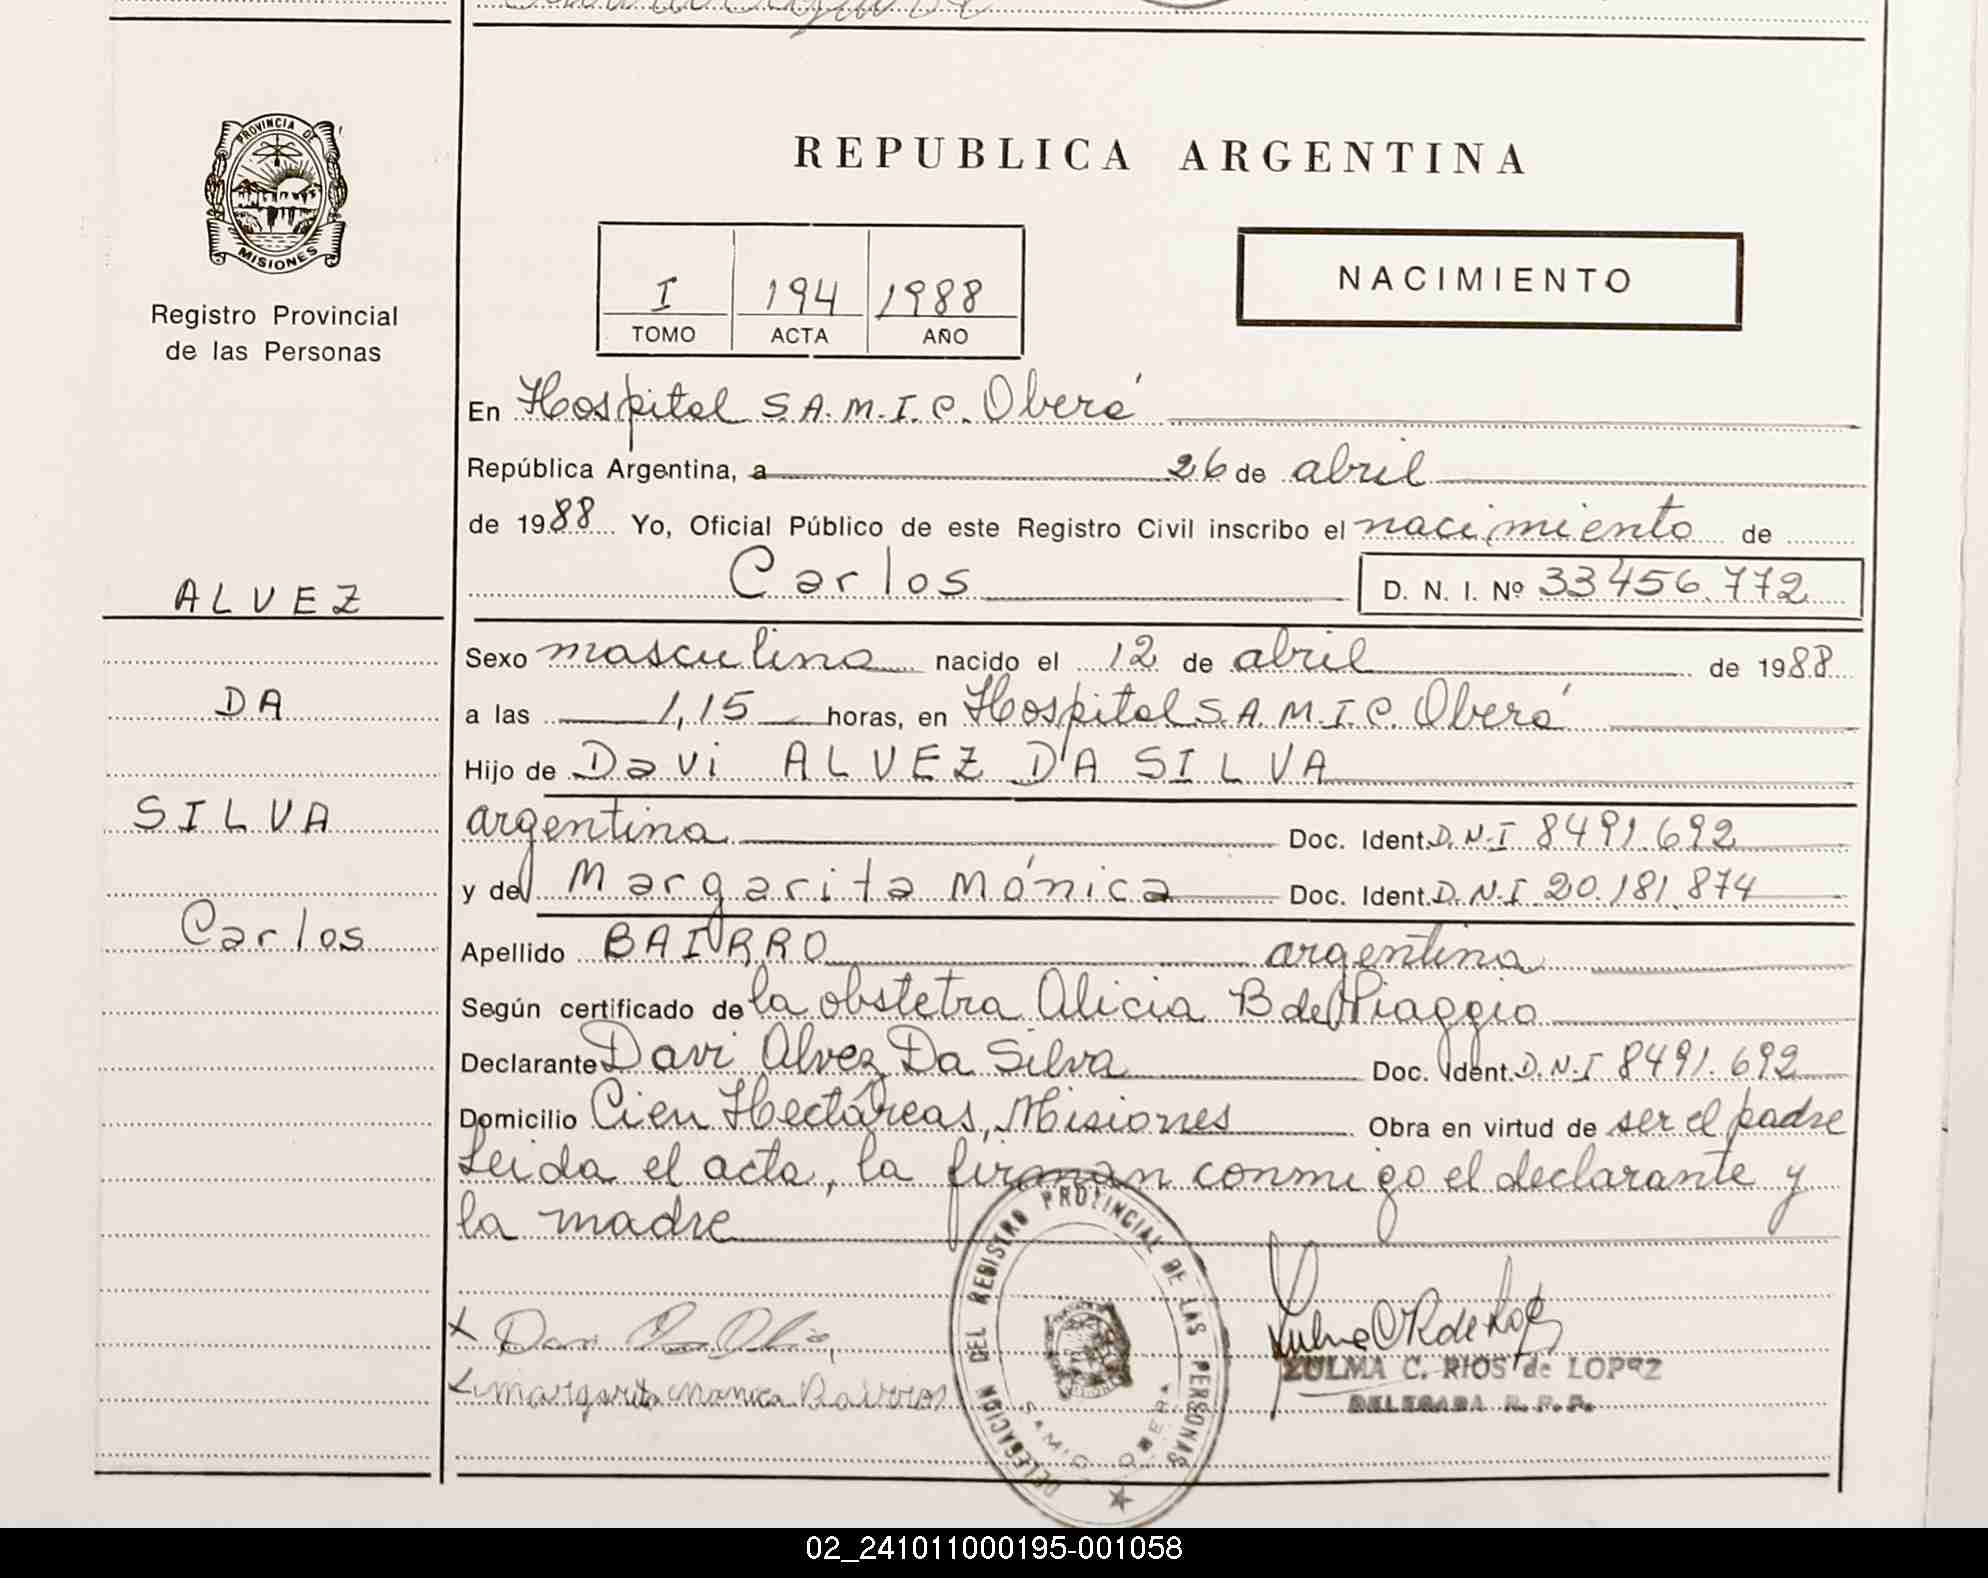 PROVINCIA DE
MISIONES
Registro Provincial
de las Personas
ALVEZ
DA
SILVA
Carlos
REPUBLICA ARGENTINA
I 194 1988
TOMO ACTA AÑO
NACIMIENTO
En Hospital S.A.M.I.C. Oberá
República Argentina, a 26 de abril
de 1988 Yo, Oficial Público de este Registro Civil inscribo el nacimiento de
Carlos D. N. I. Nº 33456.772
Sexo masculino nacido el 12 de abril de 1988
a las 1,15 horas, en Hospital S.A.M.I.C. Oberá
Hijo de Davi ALVEZ DA SILVA
argentina Doc. Ident. D.N.I 8491.692
y de Margarita Mónica Doc. Ident. D.N.I 20.181.874
Apellido BAIRRO argentina
Según certificado de la obstetra Alicia B de Piaggio
Declarante Davi Alvez Da Silva Doc. Ident. D.N.I 8491.692
Domicilio Cien Hectáreas, Misiones Obra en virtud de ser el padre
Leida el acta, la firman conmigo el declarante y
la madre
DELEGACION DEL REGISTRO PROVINCIAL DE LAS PERSONAS
SAMIC OBERA
Davi
Margarita Monica
ZULMA C. RIOS de LOPEZ
DELEGADA R.P.P.
02_241011000195-001058